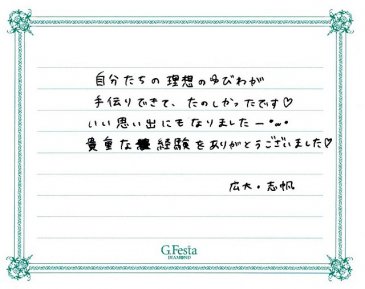 自分たちの理想のゆびわが
手伝りできて、たのしかったです♡
いい思い出にもなりましたー•ᴗ•
貴重な経験をありがとうございました♡
広大・志帆
G.Festa
DIAMOND